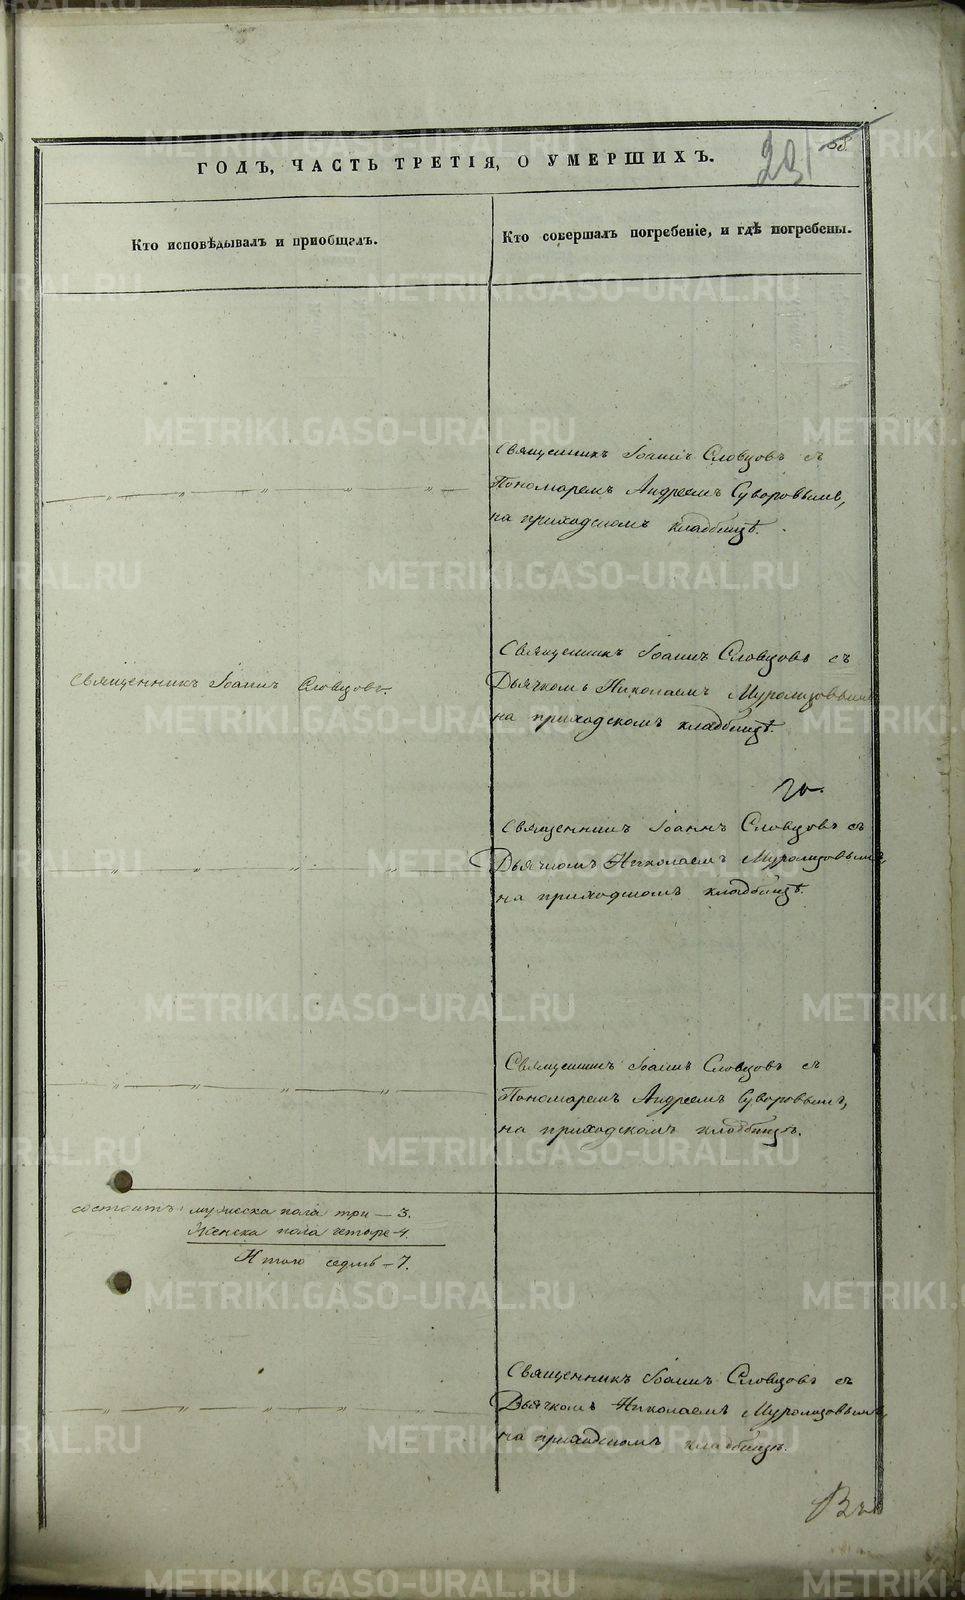 58
231
ГОДЪ, ЧАСТЬ ТРЕТІЯ, О УМЕРШИХЪ.
Кто исповѣдывалъ и пріобщалъ.
Кто совершалъ погребеніе, и гдѣ погребены.
Священникъ Іоаннъ Словцовъ съ
Пономаремъ Андреемъ Суворовымъ,
на приходскомъ кладбищѣ.
Священникъ Іоаннъ Словцовъ.
Священникъ Іоаннъ Словцовъ съ
Дьячкомъ Николаемъ Муромзовымъ
на приходскомъ кладбищѣ.
Священникъ Іоаннъ Словцовъ съ
Дьячкомъ Николаемъ Муромзовымъ,
на приходскомъ кладбищѣ.
Священникъ Іоаннъ Словцовъ съ
Пономаремъ Андреемъ Суворовымъ,
на приходскомъ кладбищѣ.
состоитъ: мужеска пола три — 3.
Женска пола четыре — 4.
Итого седмь — 7.
Священникъ Іоаннъ Словцовъ съ
Дьячкомъ Николаемъ Муромзовымъ,
на приходскомъ кладбищѣ.
METRIKI.GASO-URAL.RU